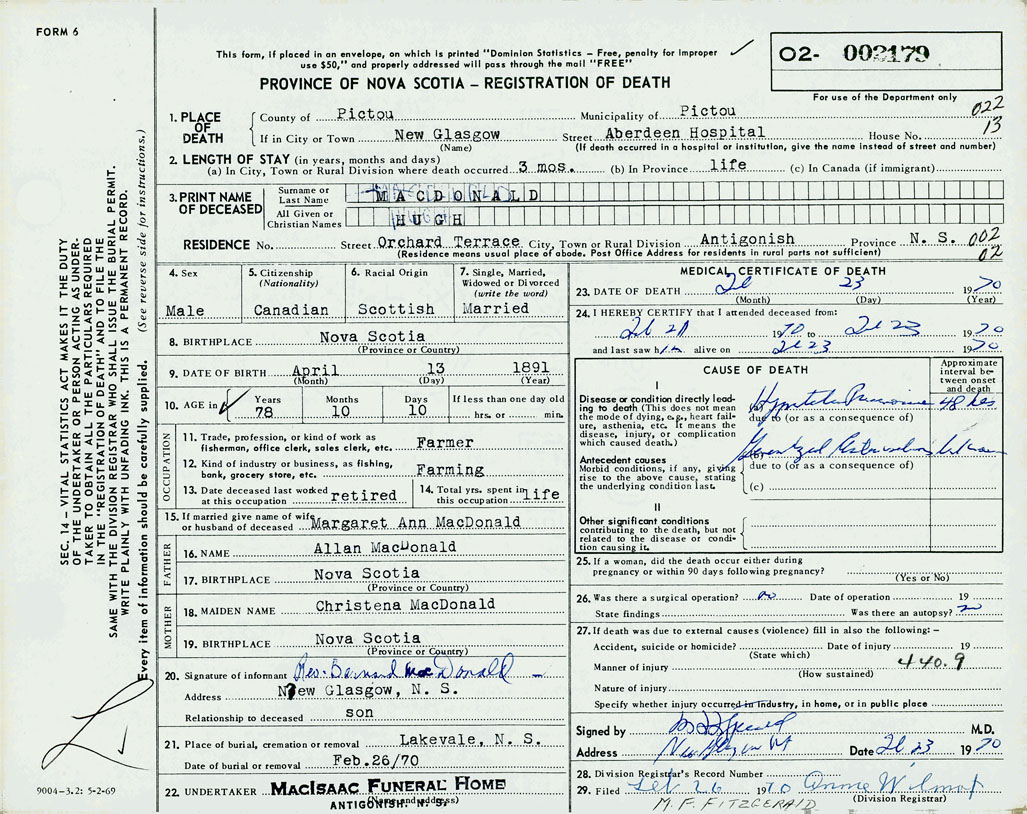 FORM 6
This form, if placed in an envelope, on which is printed "Dominion Statistics – Free, penalty for improper
use $50," and properly addressed will pass through the mail "FREE"
PROVINCE OF NOVA SCOTIA – REGISTRATION OF DEATH
O2- 002179
For use of the Department only
022
13
1. PLACE OF DEATH
County of Pictou Municipality of Pictou
If in City or Town New Glasgow Street Aberdeen Hospital House No.
(Name) (If death occurred in a hospital or institution, give the name instead of street and number)
2. LENGTH OF STAY (in years, months and days)
(a) In City, Town or Rural Division where death occurred 3 mos. (b) In Province life (c) In Canada (if immigrant)
3. PRINT NAME OF DECEASED
Surname or Last Name MACDONALD
All Given or Christian Names HUGH
RESIDENCE No. Street Orchard Terrace City, Town or Rural Division Antigonish Province N. S. 002
(Residence means usual place of abode. Post Office Address for residents in rural parts not sufficient) 02
4. Sex
Male
5. Citizenship
(Nationality)
Canadian
6. Racial Origin
Scottish
7. Single, Married,
Widowed or Divorced
(write the word)
Married
8. BIRTHPLACE Nova Scotia
(Province or Country)
9. DATE OF BIRTH April 13 1891
(Month) (Day) (Year)
10. AGE in Years Months Days If less than one day old
78 10 10 hrs. or min.
OCCUPATION
11. Trade, profession, or kind of work as
fisherman, office clerk, sales clerk, etc. Farmer
12. Kind of industry or business, as fishing,
bank, grocery store, etc. Farming
13. Date deceased last worked
at this occupation retired
14. Total yrs. spent in
this occupation life
15. If married give name of wife
or husband of deceased Margaret Ann MacDonald
FATHER
16. NAME Allan MacDonald
17. BIRTHPLACE Nova Scotia
(Province or Country)
MOTHER
18. MAIDEN NAME Christena MacDonald
19. BIRTHPLACE Nova Scotia
(Province or Country)
20. Signature of informant Rev. Bernard MacDonald
Address New Glasgow, N. S.
Relationship to deceased son
21. Place of burial, cremation or removal Lakevale, N. S.
Date of burial or removal Feb.26/70
22. UNDERTAKER MacIsaac Funeral Home
(Name and address)
ANTIGONISH N. S.
MEDICAL CERTIFICATE OF DEATH
23. DATE OF DEATH 23 1970
(Month) (Day) (Year)
24. I HEREBY CERTIFY that I attended deceased from:
1970 to 23 1970
and last saw him alive on 23 1970
CAUSE OF DEATH
Approximate interval between onset and death
I
Disease or condition directly leading to death (This does not
mean the mode of dying, e.g., heart failure, asthenia, etc. It means the
disease, injury, or complication
which caused death.)
(a) Hypostatic Pneumonia 48 hrs
due to (or as a consequence of)
Antecedent causes
Morbid conditions, if any, giving
rise to the above cause, stating
the underlying condition last.
(b)
due to (or as a consequence of)
(c)
II
Other significant conditions
contributing to the death, but not
related to the disease or condition causing it.
25. If a woman, did the death occur either during
pregnancy or within 90 days following pregnancy?
(Yes or No)
26. Was there a surgical operation? no Date of operation 19
State findings Was there an autopsy? no
27. If death was due to external causes (violence) fill in also the following: –
Accident, suicide or homicide? Date of injury 19
(State which)
Manner of injury 440.9
(How sustained)
Nature of injury
Specify whether injury occurred in industry, in home, or in public place
Signed by M.D.
Address Date 23 1970
28. Division Registrar's Record Number
29. Filed 26 1970 Anne Wilmot
(Division Registrar)
M. F. FITZGERALD
SEC. 14 – VITAL STATISTICS ACT MAKES IT THE DUTY
OF THE UNDERTAKER OR PERSON ACTING AS UNDER-
TAKER TO OBTAIN ALL THE PARTICULARS REQUIRED
IN THE "REGISTRATION OF DEATH" AND TO FILE THE
SAME WITH THE DIVISION REGISTRAR WHO SHALL ISSUE THE BURIAL PERMIT.
WRITE PLAINLY WITH UNFADING INK. THIS IS A PERMANENT RECORD.
Every item of information should be carefully supplied. (See reverse side for instructions.)
9004-3.2: 5-2-69